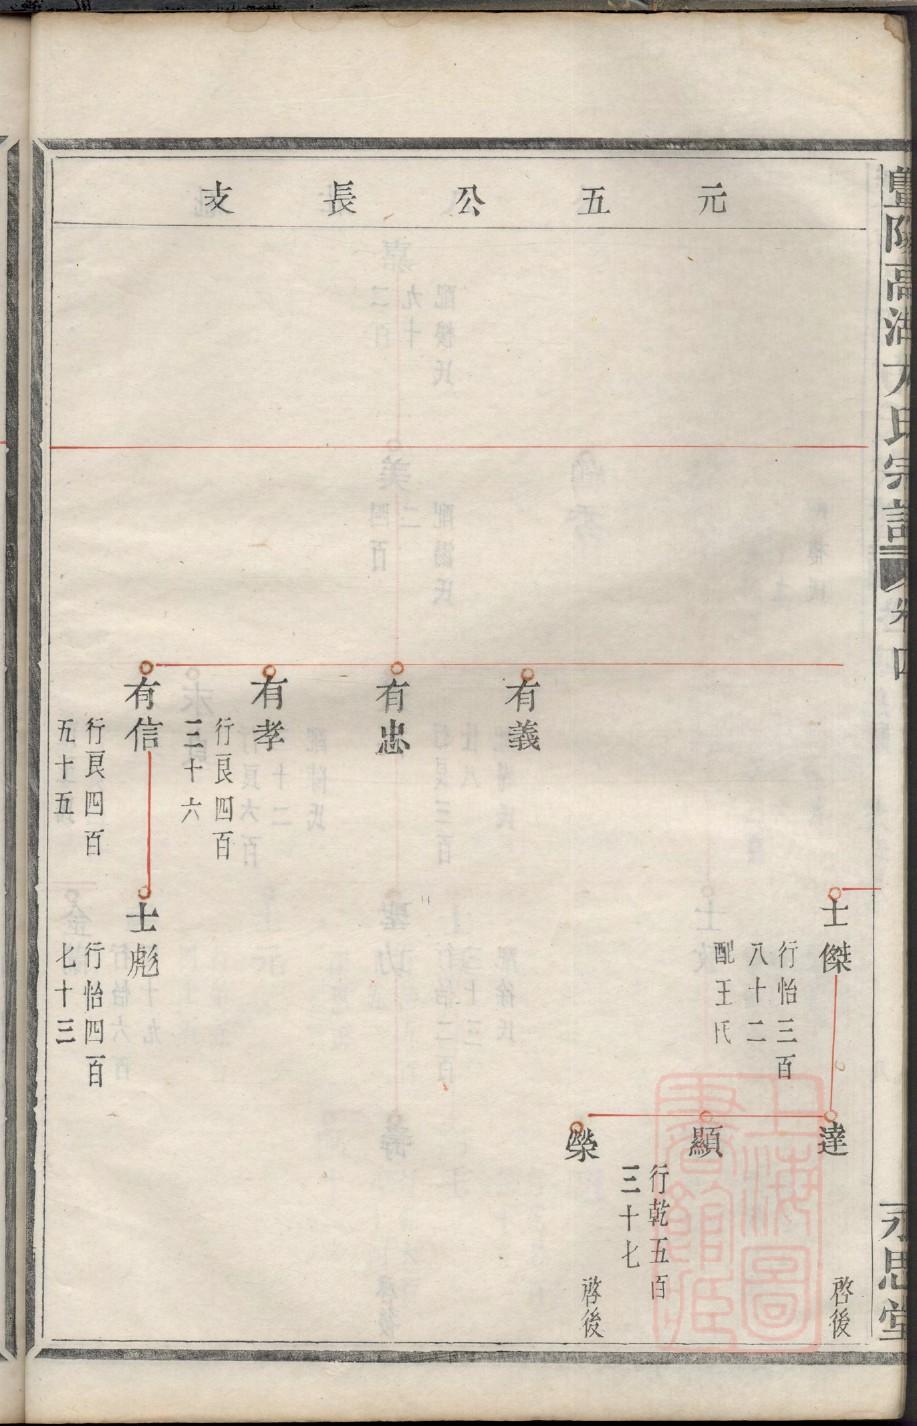 暨陽高湖方氏宗譜
卷四
永思堂
元五公長支
有義
有忠
有孝
行艮四百
三十六
有信
行艮四百
五十五
士傑
行怡三百
八十二
配王氏
士彪
行怡四百
七十三
達
啓後
顯
行乾五百
三十七
榮
啓後
上海圖
書館藏